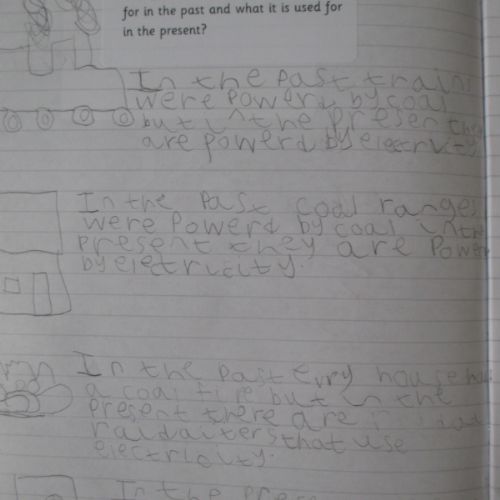 for in the past and what it is used for
in the present?
In the past trains
were powerd by coal
but in the present they
are powerd by electricity
In the Past coal ranges
were Powerd by coal in the
present they are Power
by eletricity.
In the past evry house had
a coal fire but in the
present there are
raidaiters that use
electricity.
In the pres